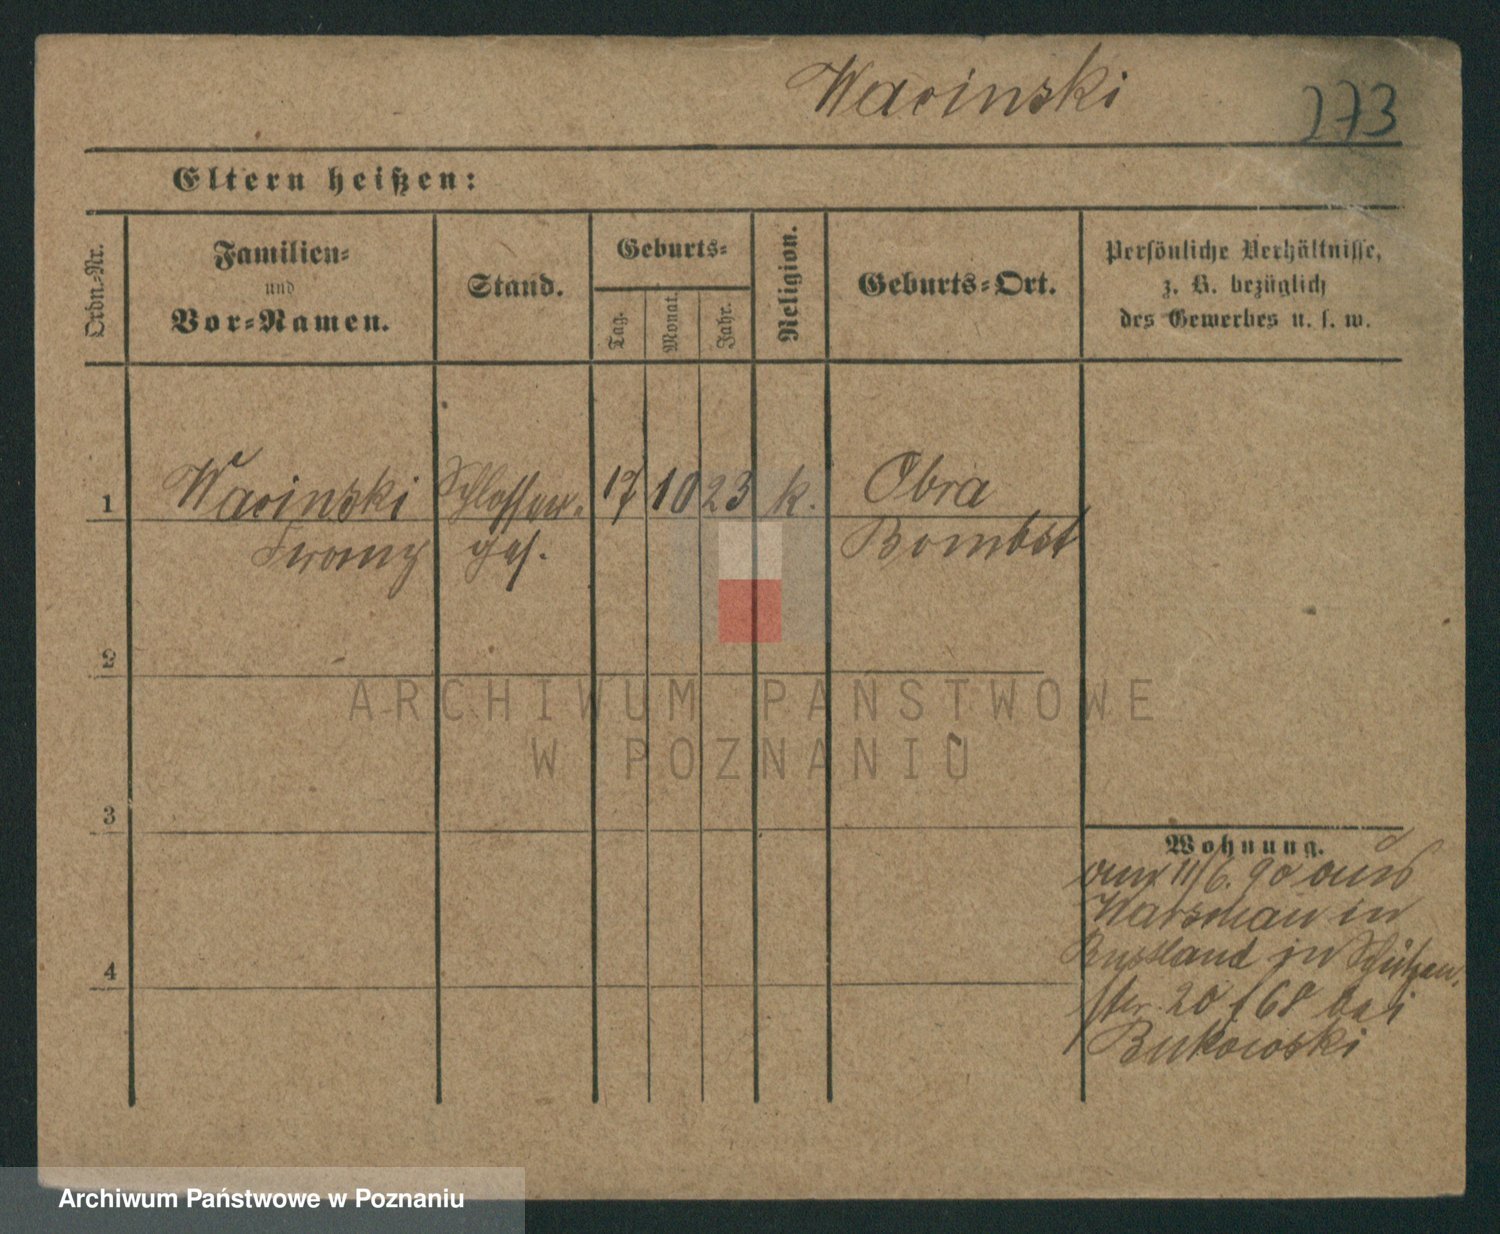 Wacinski
273
Eltern heißen:
Ordn.-Nr.
Familien-
und
Vor-Namen.
Stand.
Geburts-
Tag.
Monat.
Jahr.
Religion.
Geburts-Ort.
Persönliche Verhältnisse,
z. B. bezüglich
des Gewerbes u. s. w.
1 Wacinski Schlosser- 17 10 23 k. Obra
Franz ges. Bombst
2
3
4
Wohnung.
am 11/6. 90 aus
Warschau in
Russland in Schützen-
str. 20 bei
Bukowski
ARCHIWUM PAŃSTWOWE
W POZNANIU
Archiwum Państwowe w Poznaniu